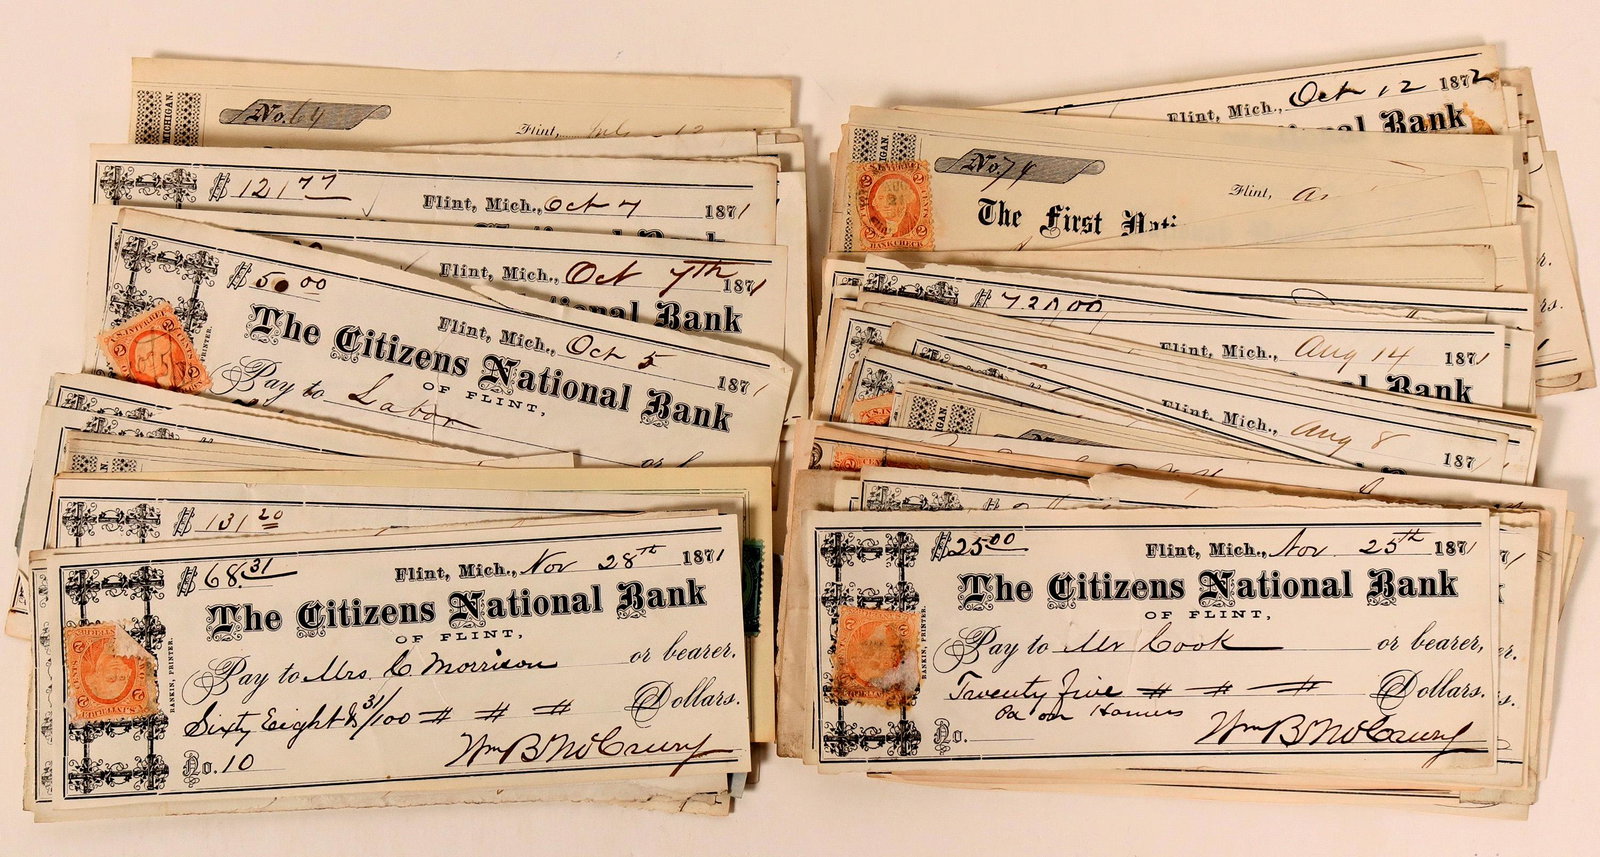 MICHIGAN.
No. 64
Flint,
$ 121 77
Flint, Mich., Oct 7 1871
Flint, Mich., Oct 7th 1871
National Bank
$ 50.00
Flint, Mich., Oct 5 1871
The Citizens National Bank
OF FLINT,
Pay to Labor
PRINTER.
$ 131 20
$ 68.31
Flint, Mich., Nov 28th 1871
The Citizens National Bank
OF FLINT,
Pay to Mrs C Morrison or bearer.
Sixty Eight & 31/100 Dollars.
Wm B McCreery
No. 10
RANKIN, PRINTER.
Flint, Mich., Oct 12 1872
National Bank
No. 74
Flint,
The First Nati
U.S. INTER. REV.
AUG
21
BANK CHECK
$ 720.00
Flint, Mich., Aug 14 1871
Bank
Flint, Mich., Aug 8 1871
$ 25 00
Flint, Mich., Nov 25th 1871
The Citizens National Bank
OF FLINT,
Pay to Mr Cook or bearer,
Twenty five Dollars.
Wm B McCreery
No.
RANKIN, PRINTER.